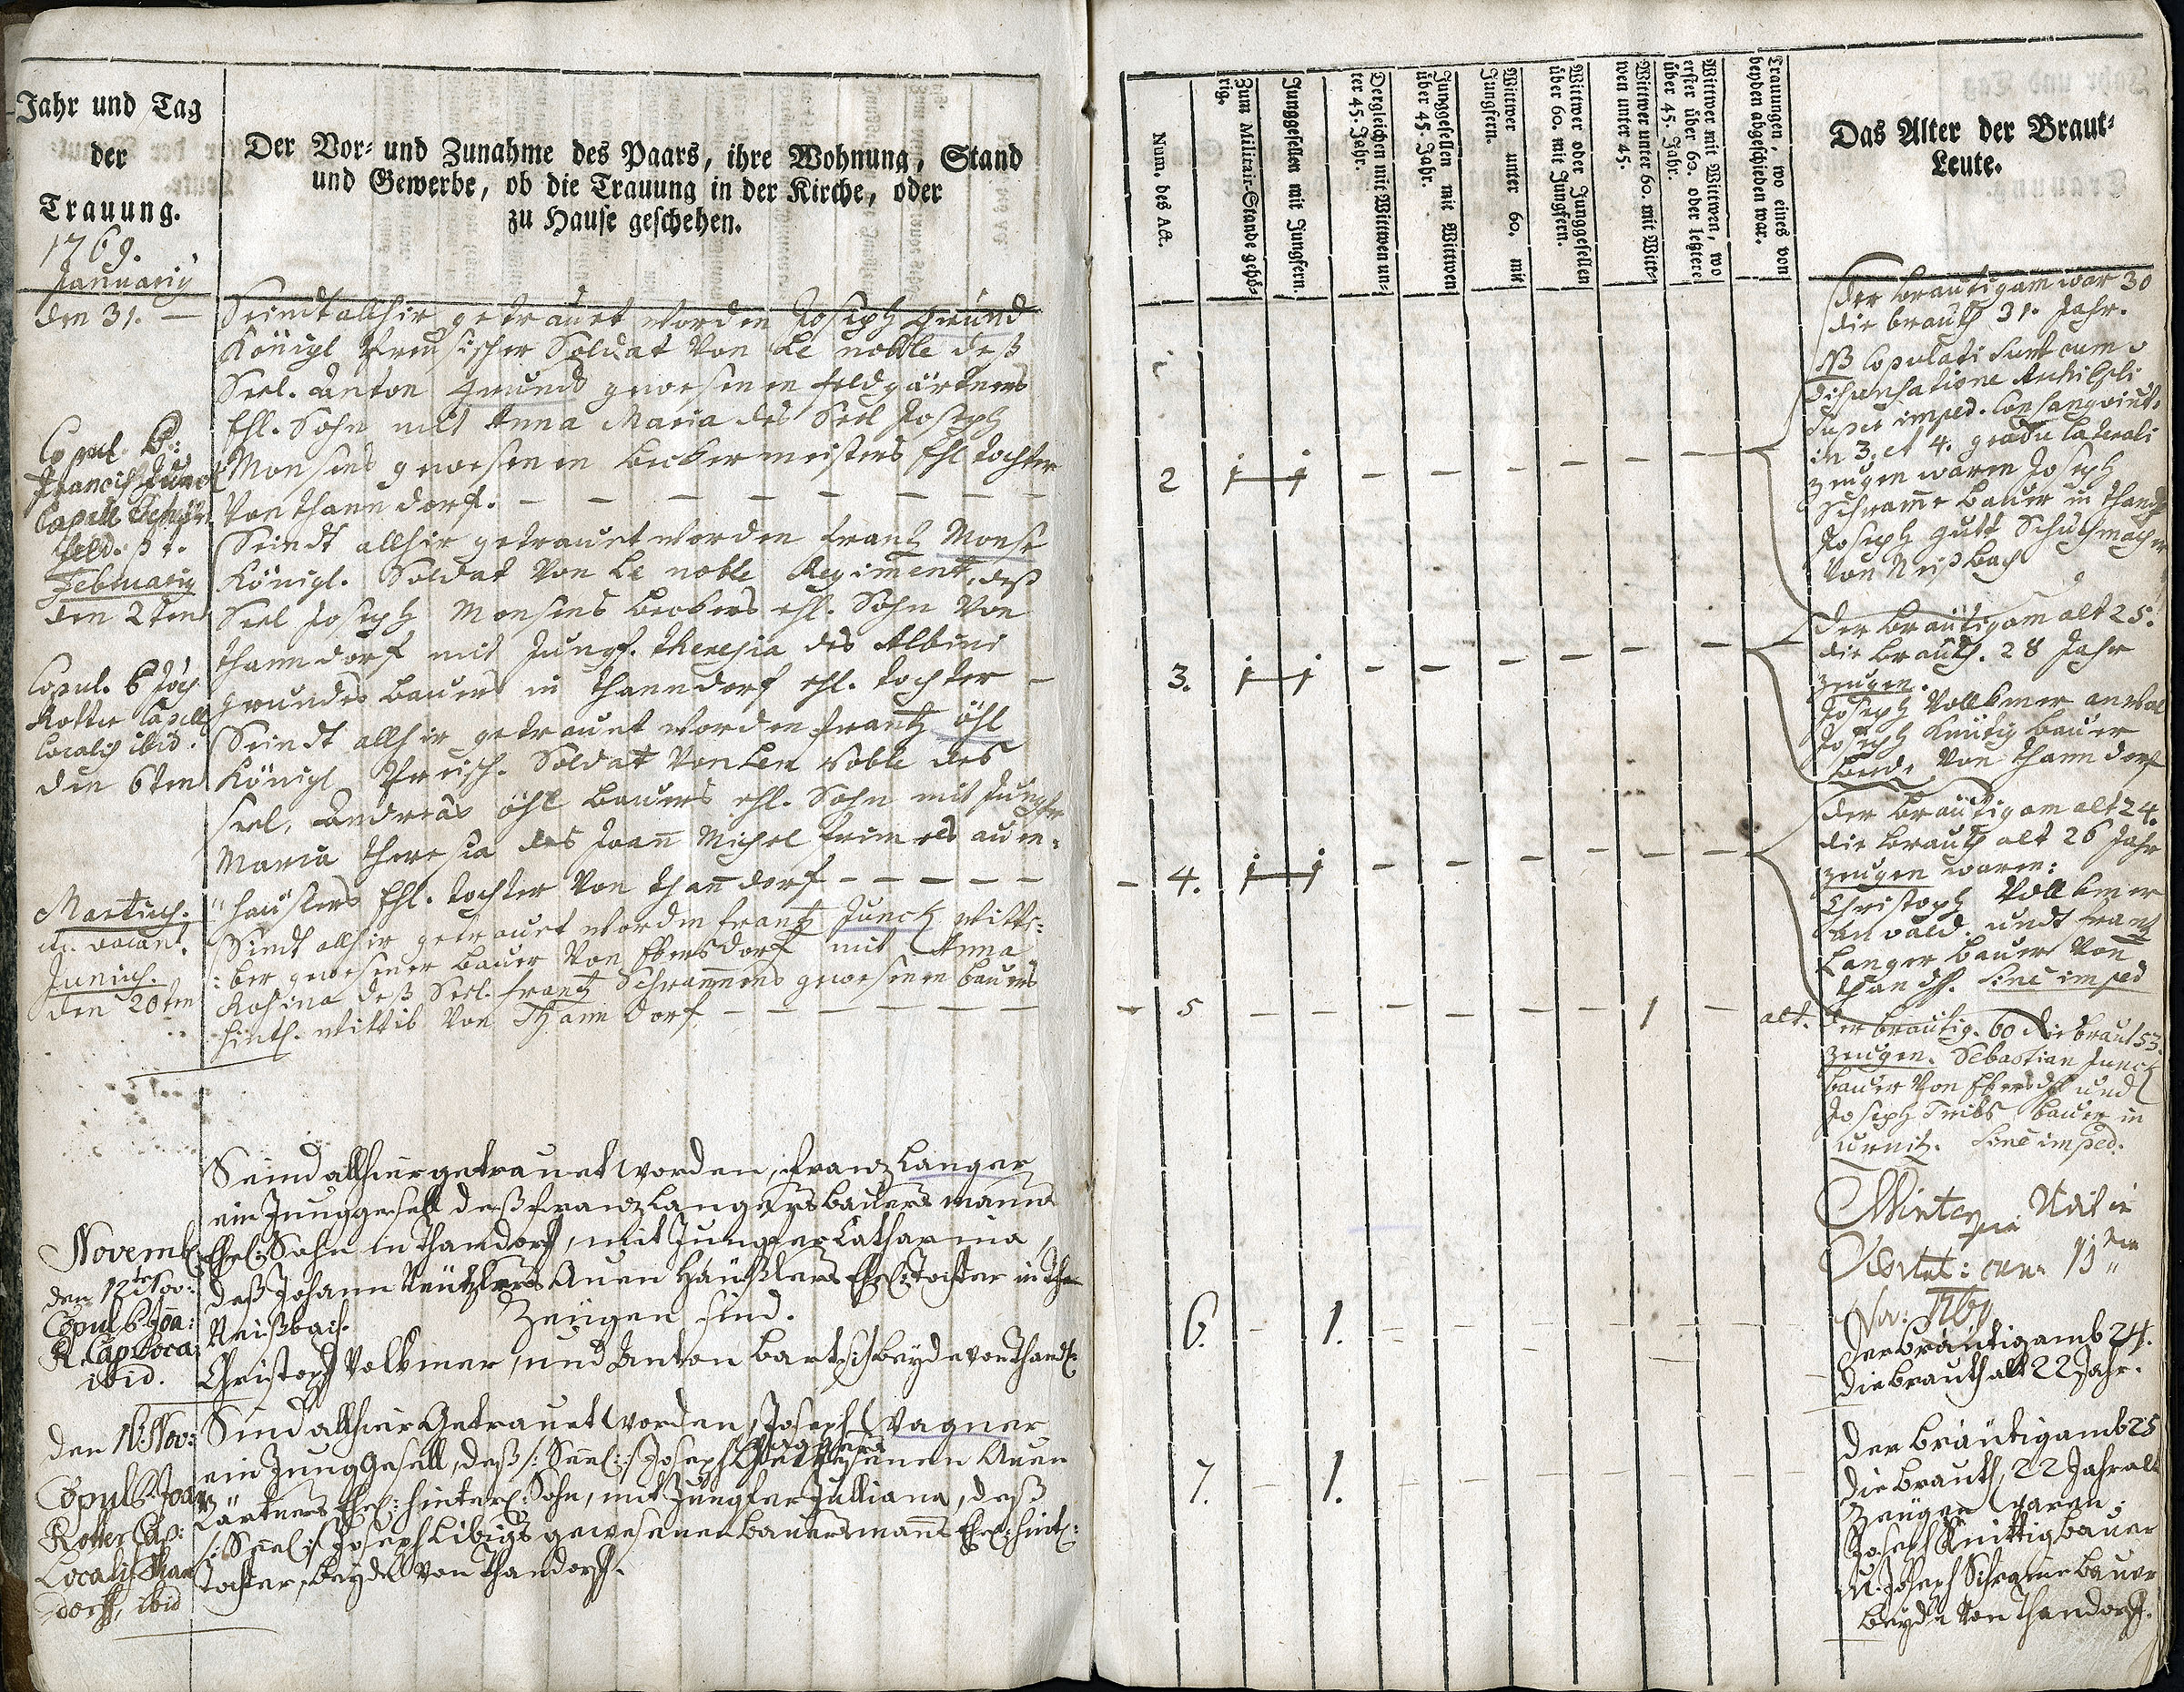 Jahr und Tag
der
Trauung.
1769.
Januarij
den 31. —
Copul. P:
Francisc
Capell.
feld. p. t.
Februarij
den 2ten
Copul. P Joh
Rotter Capell
localis ibid.
den 6ten
Martius.
vacant.
Junius.
den 20ten
Novemb
den 12te Nov:
Copul P Joa:
R. Cap Loca:
ibid.
den Nov:
Copul P. Joa
Rotter Cap:
Localis Than
dorff, ibid
Der Vor- und Zunahme des Paars, ihre Wohnung, Stand
und Gewerbe, ob die Trauung in der Kirche, oder
zu Hause geschehen.
Seindt allhir getrauet worden Joseph Grund
Königl Preusischer Soldat Von Le noble deß
Seel. Anton Grund gewesenen feldgärtners
Ehl. Sohn mit Anna Maria des Seel Joseph
Monsens gewesenen beckermeisters Ehl tochter
Von thanndorf. — — — — — — — —
Seindt allhir getrauet worden frantz Monse
Königl. Soldat Von Le noble Regiment, deß
Seel Joseph Monsens beckers ehl. Sohn Von
thanndorf mit Jungf. theresia des Albini
grundes bauers in thanndorf ehl. tochter —
Seindt allhir getrauet worden frantz öhl
Königl Preusch. Soldat Von Len noble des
seel. Andreas öhl bauers ehl. Sohn mit Jungfer
Maria theresia des Joan̄ Michel auen-
häuslers Ehl. tochter Von than̄dorf — — — — —
Sindt allhir getrauet worden frantz Junck witti-
:ber gewesener bauer Von Ebersdorf mit Anna
Rosina deß Seel. frantz Schram̄ens gewesenen bauers
hintl. wittib Von Thanndorf. — — — — — —
Seind allhier getrauet worden, Franz Langer
ein Junggesell deß Franz Langers bauersmanns
Ehel: Sohn in Thandorf, mit Jungfer Catharina,
deß Johann Auen Häußlers Ehel: Tochter in
Neißbach. Zeugen sind.
Christoph Volkmer, und Anton beyde von Thandf:
Sind allhier Getrauet worden, Joseph Wagner
Wagners
ein Junggesell, deß /: Seel: :/ Joseph gewesenen Auen
Gärtners Ehel: hinterl: Sohn, mit Jungfer Julliana, deß
/: Seel :/ Joseph Libigs gewesenen bauersmanns Ehel: hintl:
Tochter, beyde von Thandorff.
Num. des Act.
Zum Militair-Stande gehö-
rig.
Junggesellen mit Jungfern.
Dergleichen mit Wittwen un-
ter 45. Jahr.
Junggesellen mit Wittwen
über 45. Jahr.
Wittwer unter 60. mit
Jungfern.
Wittwer oder Junggesellen
über 60. mit Jungfern.
Wittwer unter 60. mit Witt-
wen unter 45.
Wittwer mit Wittwen, wo
erster über 60. oder letztere
über 45. Jahr.
Trauungen, wo eines von
beyden abgeschieden war.
Das Alter der Braut-
Leute.
2 1 1 — — — — — —
3. 1 1 — — — — — —
4. 1 1 — — — — — —
5 — — — — — — 1 —
6. — 1. — — — — —
7. — 1. — — — — —
der bräutigam war 30
die brauth 31. Jahr.
NB Copulati sunt cum
dispensatione
super imped. Consanguinit.
in 3. et 4. gradu laterali
zeugen waren Joseph
Schram̄e bauer in thandf
Joseph gutt Schuchmacher
Von Neißbach
der bräutigam alt 25.
die brauth. 28 Jahr
zeugen.
Joseph Vollkmer anwal
Joseph Knittig bauer
beyde Von thanndorf
der bräutigam alt 24.
die brauth alt 26 Jahr
zeugen waren:
Christoph Vollkmer
anwald. undt frantz
Langer bauer Von
thandf. sine imped
alt. der bräutig. 60 die braut 53.
zeugen. Sebastian Junck
bauer Von Ebersdf und
Joseph bauer in
sine imped.
Nov: 1769
der bräutigamb 24.
die brauth alt 22 Jahr.
der bräutigamb 25
die brauth, 22 Jahr alt
Zeugen waren.
Joseph Knittig bauer
u. Joseph Schrame bauer
beyde von Thandorff.